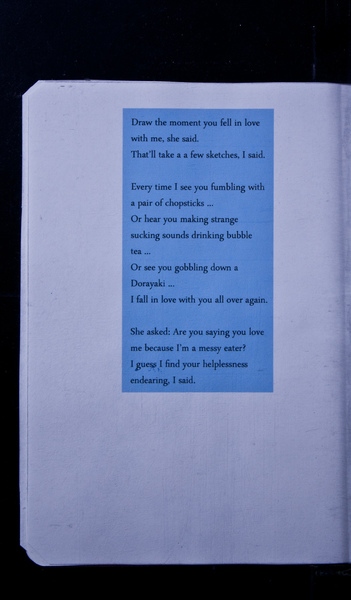 Draw the moment you fell in love
with me, she said.
That'll take a a few sketches, I said.
Every time I see you fumbling with
a pair of chopsticks ...
Or hear you making strange
sucking sounds drinking bubble
tea ...
Or see you gobbling down a
Dorayaki ...
I fall in love with you all over again.
She asked: Are you saying you love
me because I'm a messy eater?
I guess I find your helplessness
endearing, I said.